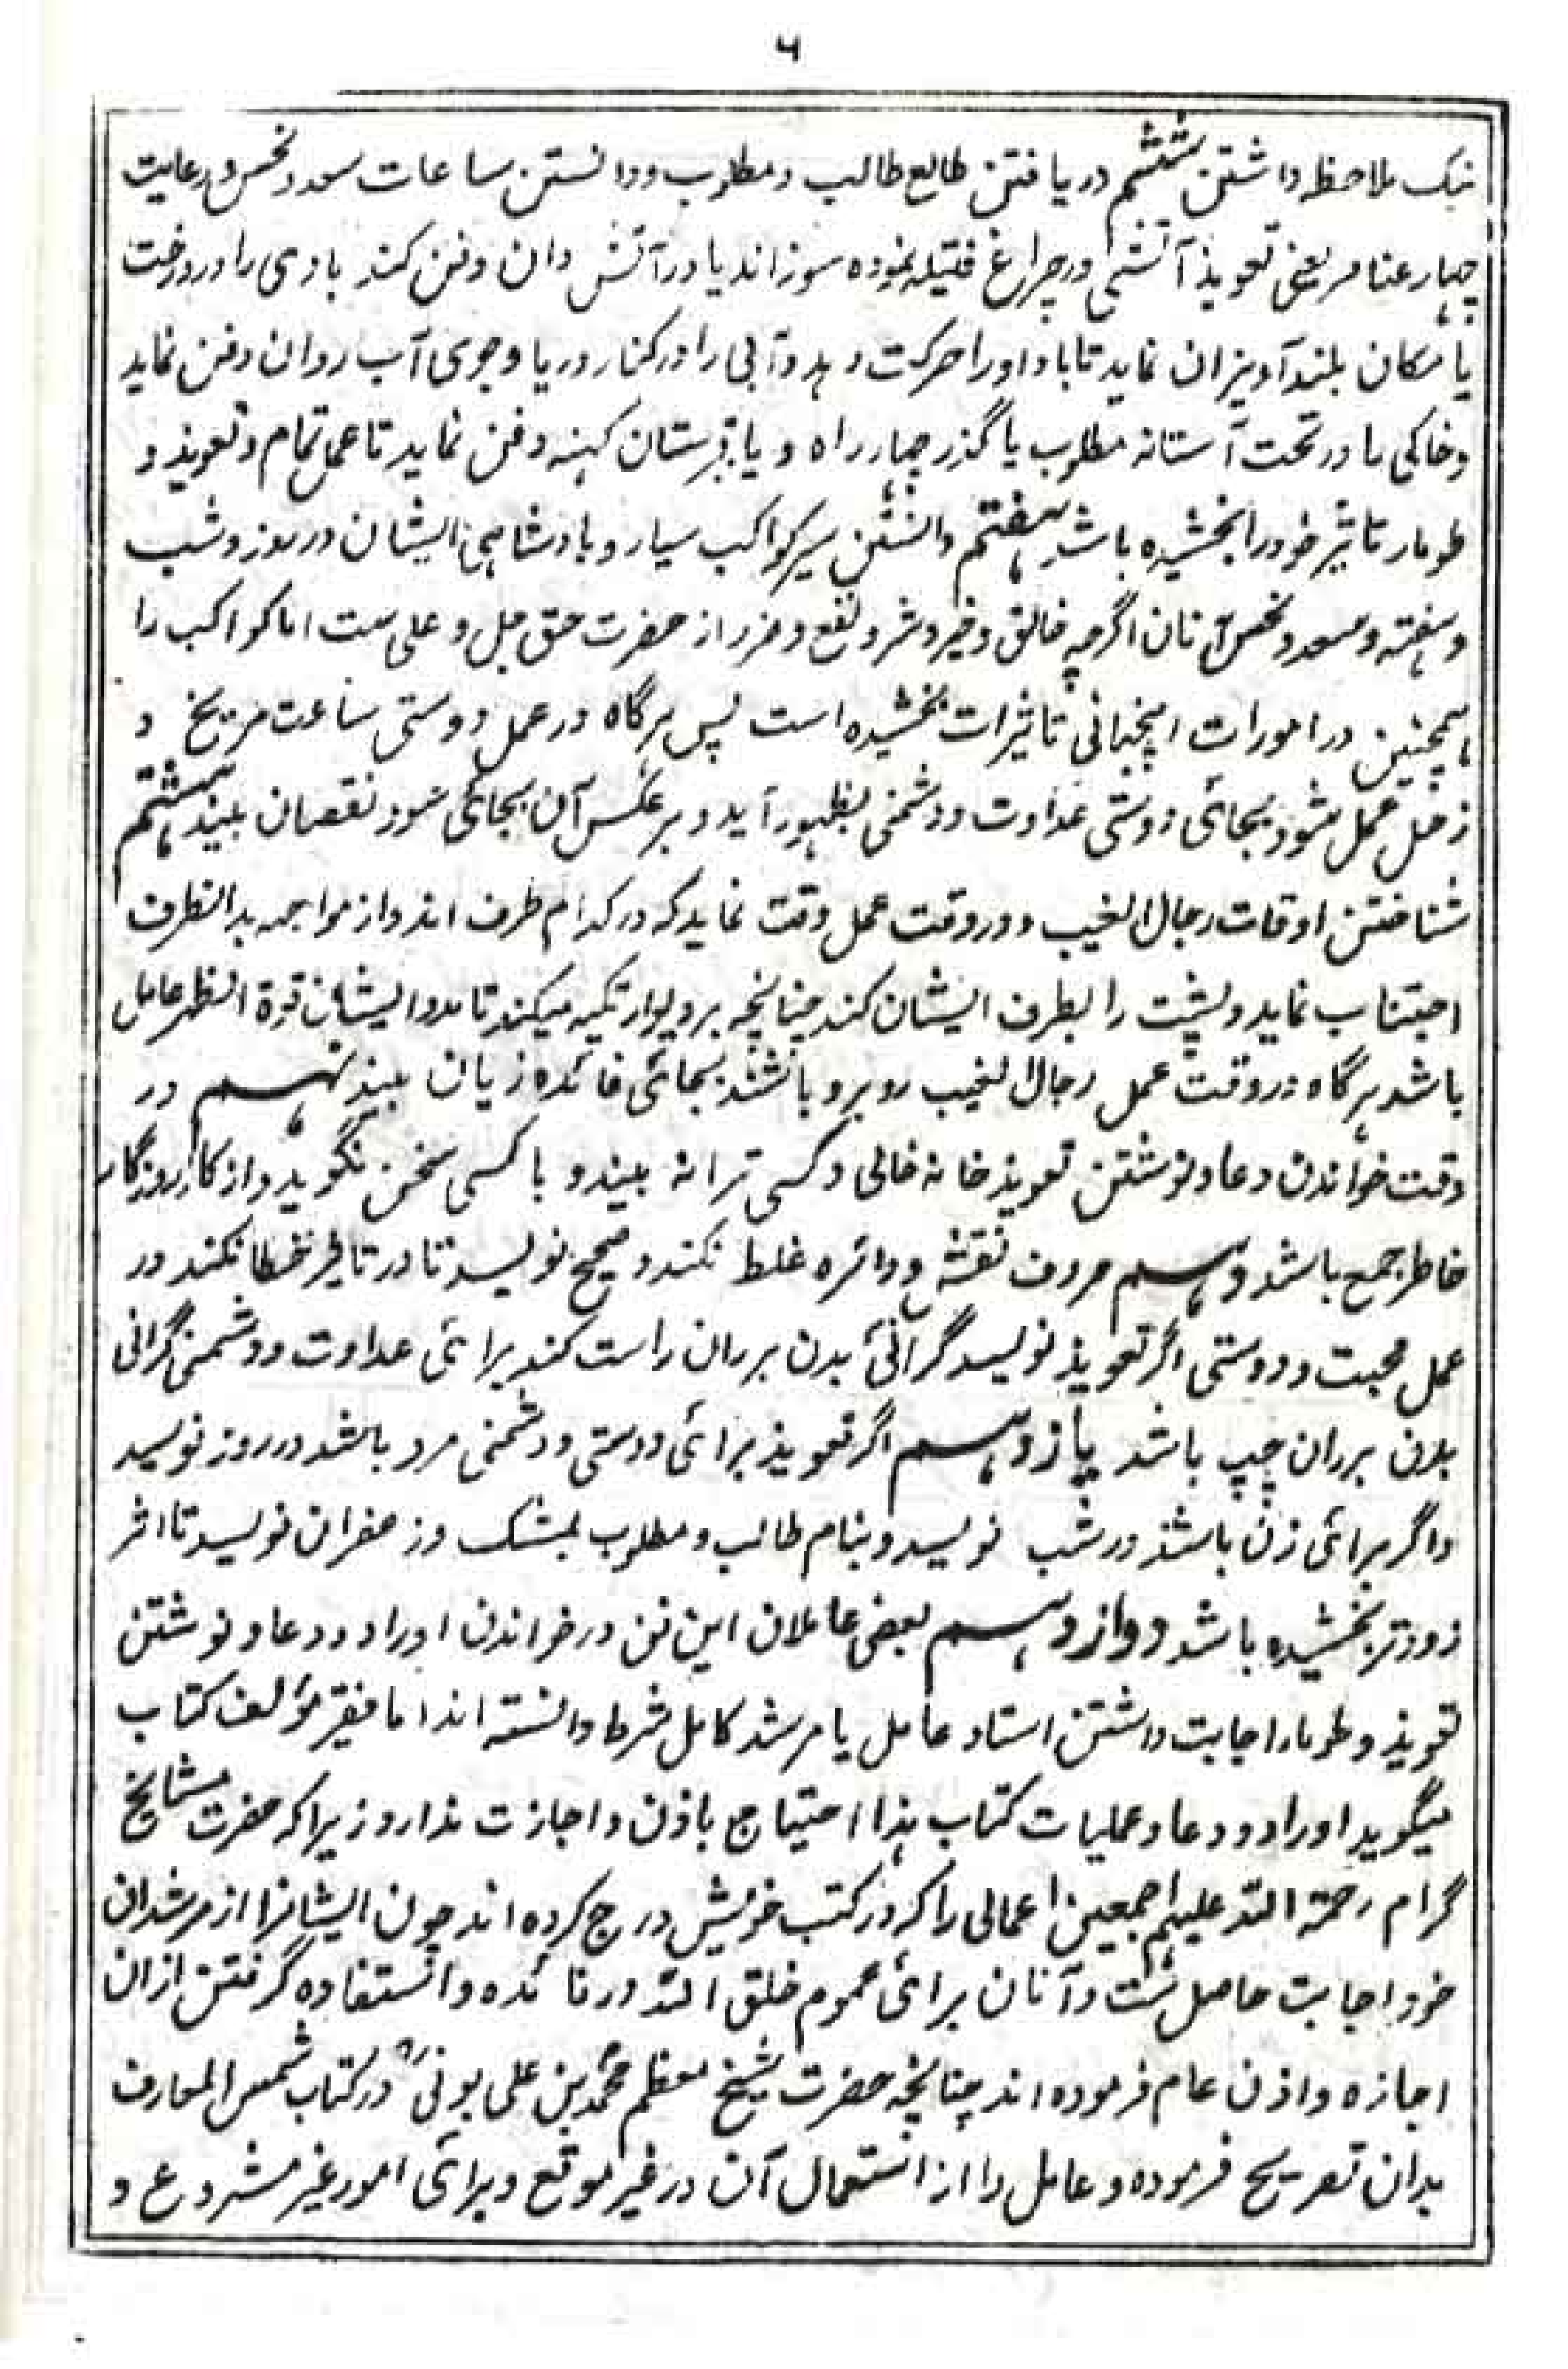 ۶
نیک ملاحظه داشتن ششم دریافتن طالع طالب و مطلوب و دانستن ساعات سعد و نحس و رعایت
چهار عناصر یعنی تعویذ آتشی در چراغ فتیله نموده سوزاند یا در آتش دان دفن کند بادی را در درخت
یا مکان بلند آویزان نماید تا باد او را حرکت دهد و آبی را در کنار دریا و جوی آب روان دفن نماید
و خاکی را در تحت آستانه مطلوب یا گذر چهار راه و یا قبرستان کهنه دفن نماید تا عمل تمام و تعویذ و
طومار تاثیر خود را بخشیده باشد هفتم دانستن سیر کواکب سیار و بادشاهی ایشان در روز و شب
و هفته و سعد و نحس آنان اگرچه خالق و خیر و شر و نفع و ضرر از حضرت حق جل و علی ست اما کواکب را
همچنین در امورات اینجهانی تاثیرات بخشیده است پس هرگاه در عمل دوستی ساعت مریخ و
زحل عمل شود بجائی دوستی عداوت و دشمنی بظهور آید و برعکس آن بجائی سود نقصان بیند هشتم
شناختن اوقات رجال الغیب و در وقت عمل دقت نماید که در کدام طرف اند و از مواجهه بدانطرف
اجتناب نماید و پشت را بطرف ایشان کند چنانچه بر دیوار تکیه میکند تا مدد ایشان قوة الظهر عامل
باشد هرگاه در وقت عمل رجال الغیب روبرو باشند بجائی فائده زیان بیند نهم در
وقت خواندن دعا و نوشتن تعویذ خانه خالی و کسی ترا نه بیند و با کسی سخن نگوید و از کار روزگار
خاطر جمع باشد دهم حروف نقشه و دائره غلط نکند و صحیح نویسد تا در تاثیر خطا نکند در
عمل محبت و دوستی اگر تعویذ نویسد گرانئ بدن بر ران راست کند برائی عداوت و دشمنی گرانی
بدن بر ران چپ باشد یازدهم اگر تعویذ برائی دوستی و دشمنی مرد باشد در روز نویسد
و اگر برائی زن باشد در شب نویسد و بنام طالب و مطلوب بمشک و زعفران نویسد تا اثر
زودتر بخشیده باشد دوازدهم بعضی عاملان این فن در خواندن اوراد و دعا و نوشتن
تعویذ و طومار اجابت داشتن استاد عامل یا مرشد کامل شرط دانسته اند اما فقیر مؤلف کتاب
میگوید اوراد و دعا و عملیات کتاب هذا احتیاج باذن و اجازت ندارد زیرا که حضرت مشایخ
گرام رحمة الله علیهم اجمعین اعمالی را که در کتب خویش درج کرده اند چون ایشانرا از مرشدان
خود اجابت حاصل ست و آنان برائی عموم خلق الله در فائده و استفاده گرفتن ازان
اجازه و اذن عام فرموده اند چنانچه حضرت شیخ معظم محمد بن علی بونی در کتاب شمس المعارف
بدان تصریح فرموده و عامل را از استعمال آن در غیر موقع و برائی امور غیر مشروع و